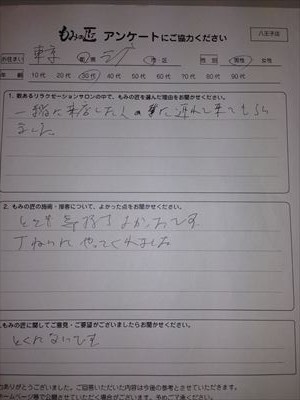 もみの匠 アンケートにご協力ください
八王子店
お住まい 東京 都/県 市 区 性別 男性 女性
年齢 10代 20代 30代 40代 50代 60代 70代 80代 90代
1. 数あるリラクゼーションサロンの中で、もみの匠を選んだ理由をお聞かせください。
一緒に来店した人に連れて来てもらい
ました
2. もみの匠の施術・接客について、よかった点をお聞かせください。
とても気持ちよかったです
丁ねいにやってくれました
もみの匠に関してご意見・ご要望がございましたらお聞かせください。
とくにないです
ありがとうございました。ご回答いただいた内容は今後の参考とさせていただきます。
ホームページ等で公開させていただく場合がございます。予めご了承ください。